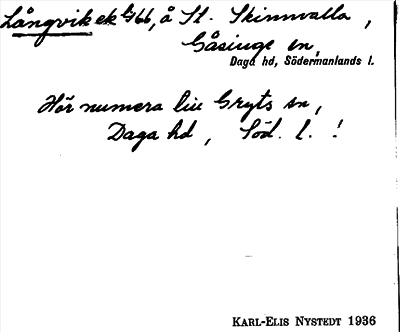 Långvik ek 4766, å St. Skinnvalla,
Gåsinge sn,
Daga hd, Södermanlands l.
Hör numera till Gryts sn,
Daga hd, Söd. l. !
KARL-ELIS NYSTEDT 1936